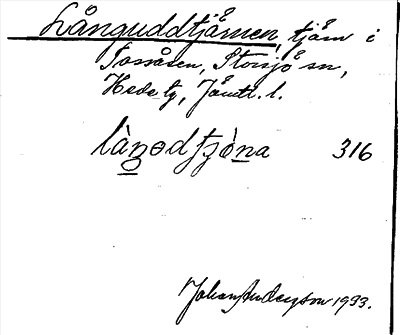 Långuddtjärnen, tjärn i
Tossåsen, Storsjö sn,
Hede tg, Jämtl. l.
làŋɵdʃʒò̤na 316
Johan Anderson 1933.